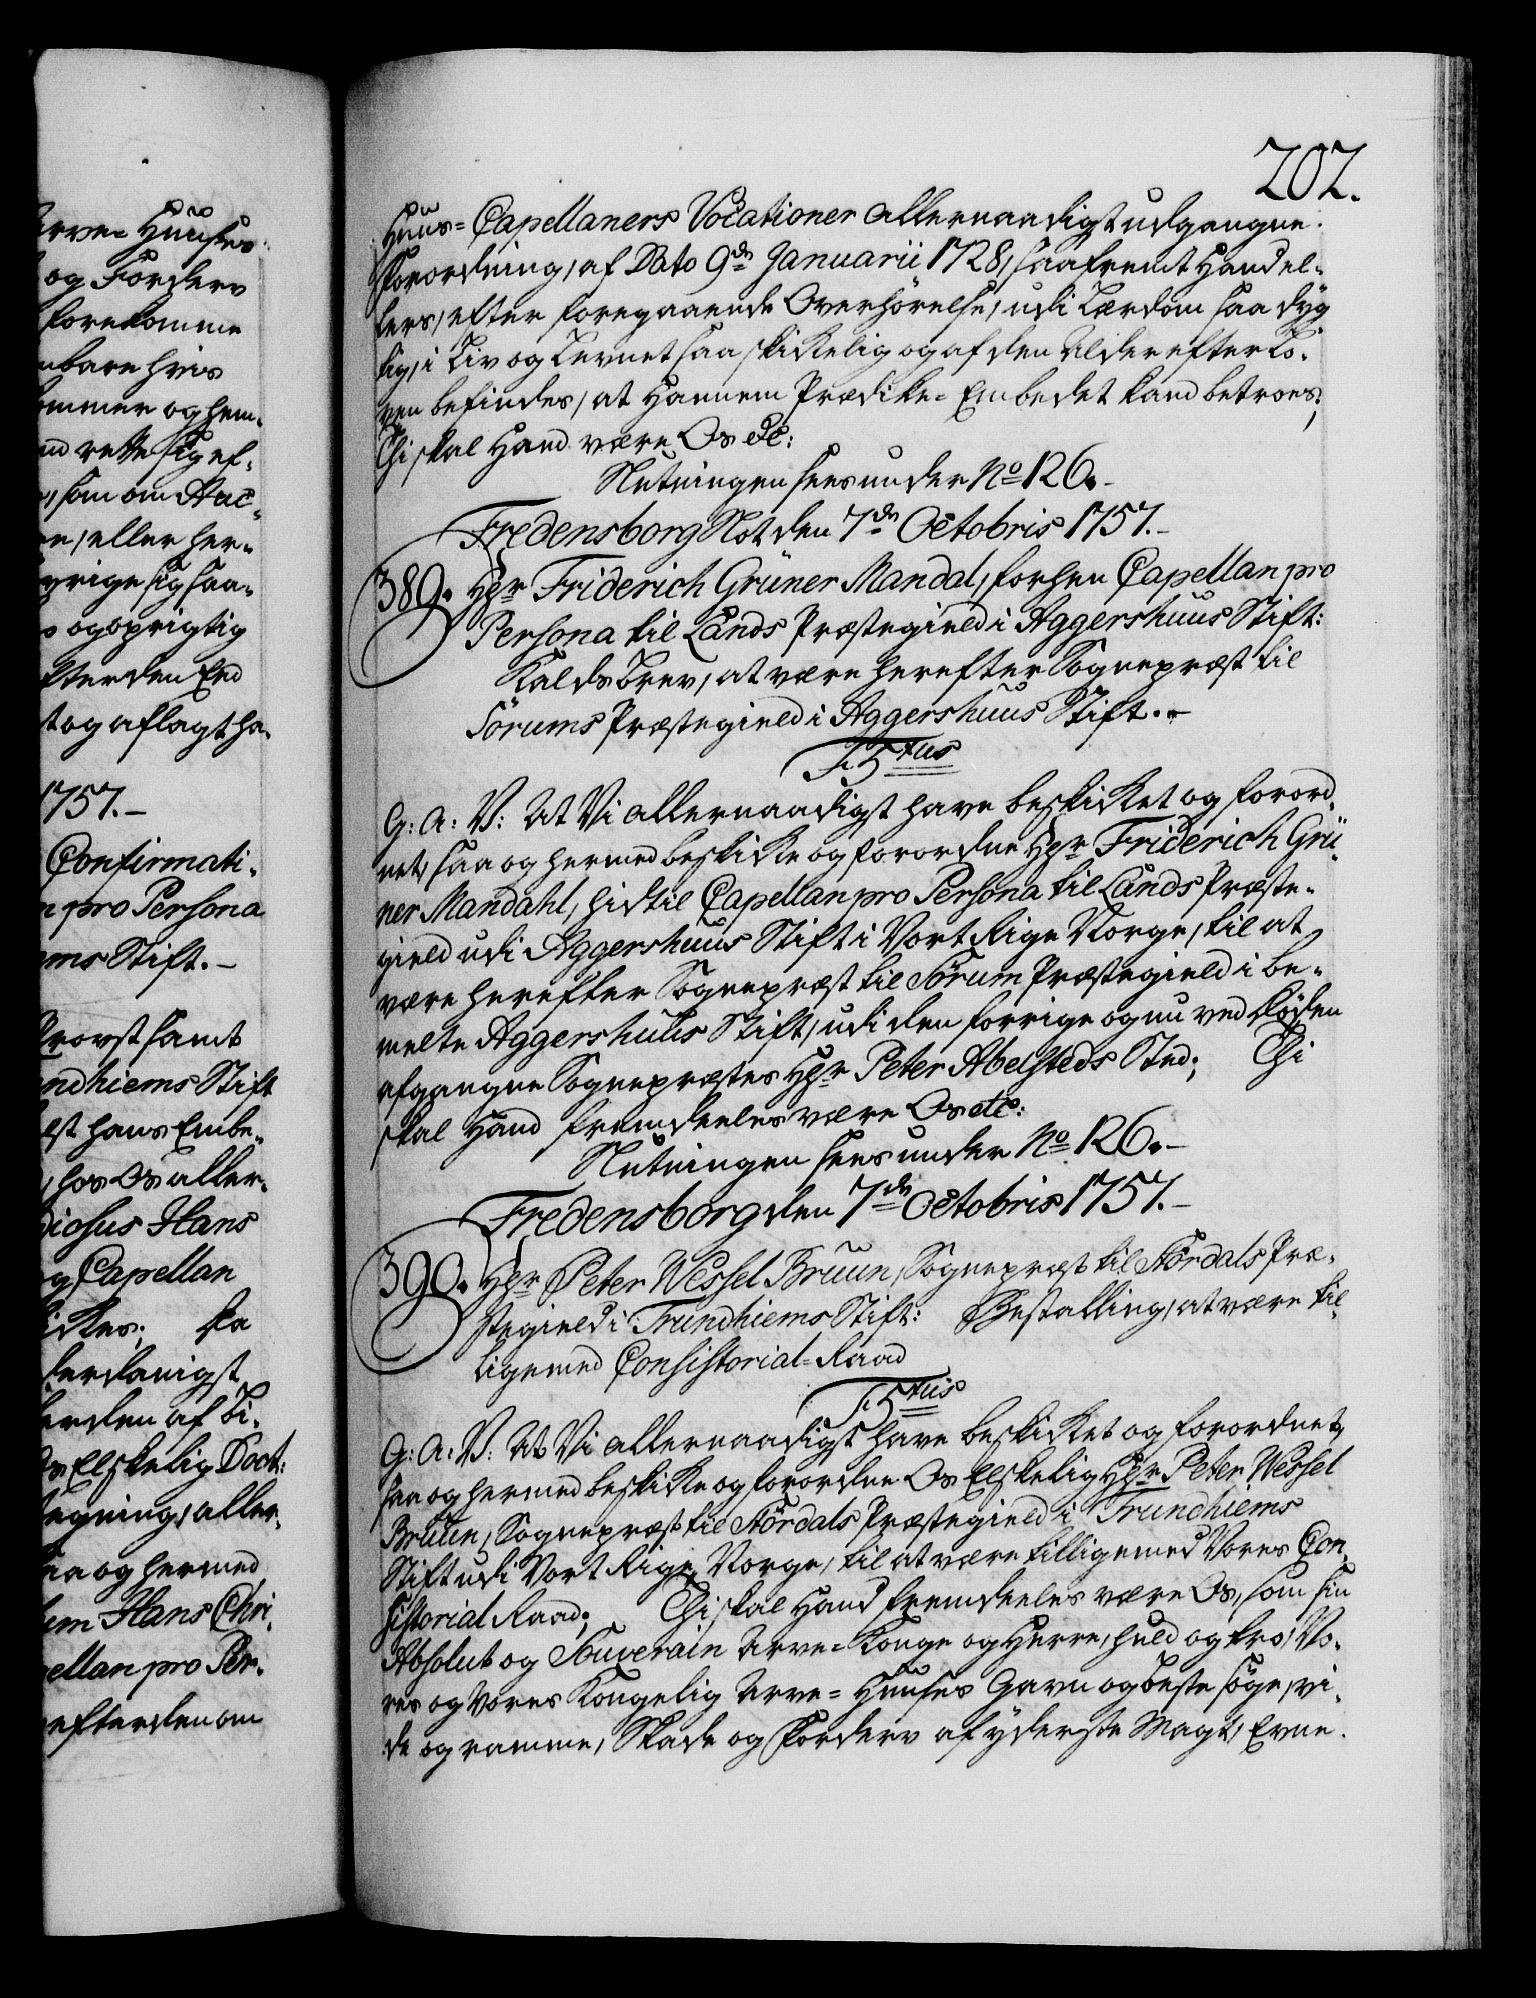 202.
Huus= Capellaners Vocationer allernaadigst udgangne
Forordning, af Dato 9de Januarii 1728, saafremt Hand el-
lers, efter foregaaende Overhörelse, udi Lærdom saa dyg
tig, i Liv og Levnet saa skikkelig og af den Alder efter Lo-
ven befindes, at Hannem Prædike= Embedet kand betroes;
Thi skal Hand være Os etc:
Slutningen sees under No 126.-
Fredensborg Slot den 7de Octobris 1757.-
389. Hgr Friderich Grüner Mandal, forhen Capellan pro
Persona til Lands Præstegield i Aggershuus Stift:
Kalds Brev, at være herefter Sognepræst til
Sörums Præstegield i Aggershuus Stift.-
F. 5tus
G: A: V: At Vi allernaadigst have beskikket og forord
net, saa og hermed beskikke og forordne Hgr Friderich Grü
ner Mandahl, hidtil Capellan pro Persona til Lands Præste-
gield udi Aggershuus Stift i Vort Rige Norge, til at
være herefter Sognepræst til Sörum Præstegield i be-
melte Aggershuus Stift, udi den forrige og nu ved Döden
afgangne Sognepræstes Hgr Peter Abelsteds Sted; Thi
skal Hand fremdeeles være Os etc:
Slutningen sees under No 126.-
Fredensborg den 7de Octobris 1757.-
390. Hgr Peter Wessel Bruun, Sognepræst til Stördals Præ-
stegield i Trundhiems Stift: Bestalling, at være til-
ligemed Consistorial=Raad
F. 5tus
G: A: V: At Vi allernaadigst have beskikket og forordnet,
saa og hermed beskikke og forordne Os Elskelig Hgr Peter Wessel
Bruun, Sognepræst til Stördals Præstegield i Trundhiems
Stift udi Vort Rige Norge, til at være tilligemed Vores Con
sistorial Raad; Thi skal Hand fremdeeles være Os, som sin
Absolut og Souverain Arve=Konge og Herre, huld og troe, Vo-
res og Vores Kongelig Arve= Huuses Gavn og Beste söge, vi-
de og ramme, Skade og Forderv af yderste Magt, Evne